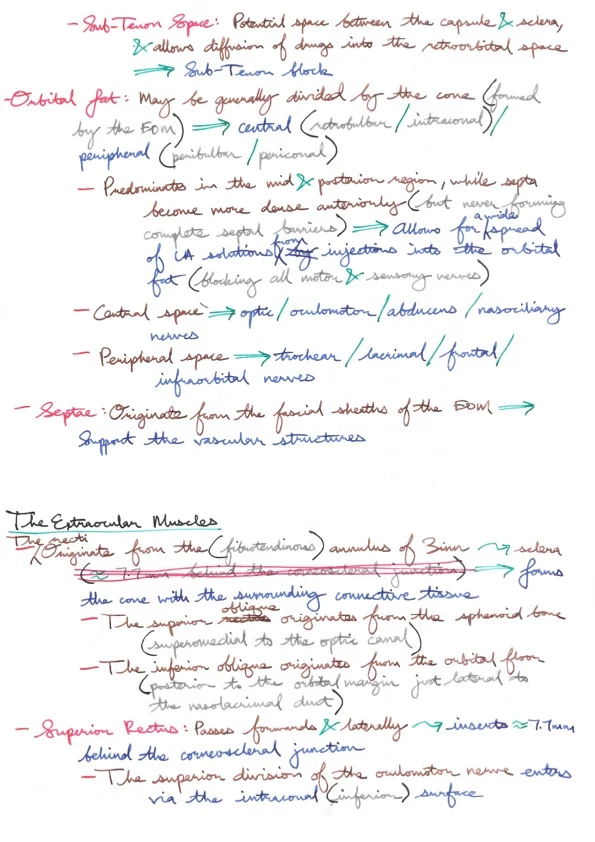 - Sub-Tenon Space: Potential space between the capsule & sclera,
& allows diffusion of drugs into the retroorbital space
⟹ Sub-Tenon block
- Orbital fat: May be generally divided by the cone (formed
by the EOM) ⟹ central (retrobulbar/intraconal)/
peripheral (peribulbar/periconal)
- Predominates in the mid & posterior region, while septa
become more dense anteriorly (but never forming
complete septal barriers) ⟹ Allows for a wide spread
of LA solutions from injections into the orbital
fat (blocking all motor & sensory nerves)
- Central space ⟹ optic/oculomotor/abducens/nasociliary
nerves
- Peripheral space ⟹ trochear/lacrimal/frontal/
infraorbital nerves
- Septae: Originate from the fascial sheaths of the EOM ⟹
Support the vascular structures
The Extraocular Muscles
- The recti Originate from the (fibrotendinous) annulus of Zinn ⤳ sclera
(≈ 7.7mm behind the corneoscleral junction) ⟹ forms
the cone with the surrounding connective tissue
- The superior oblique originates from the sphenoid bone
(superomedial to the optic canal)
- The inferior oblique originates from the orbital floor
(posterior to the orbital margin just lateral to
the nasolacrimal duct)
- Superior Rectus: Passes forwards & laterally ⤳ inserts ≈ 7.7mm
behind the corneoscleral junction
- The superior division of the oculomotor nerve enters
via the intraconal (inferior) surface